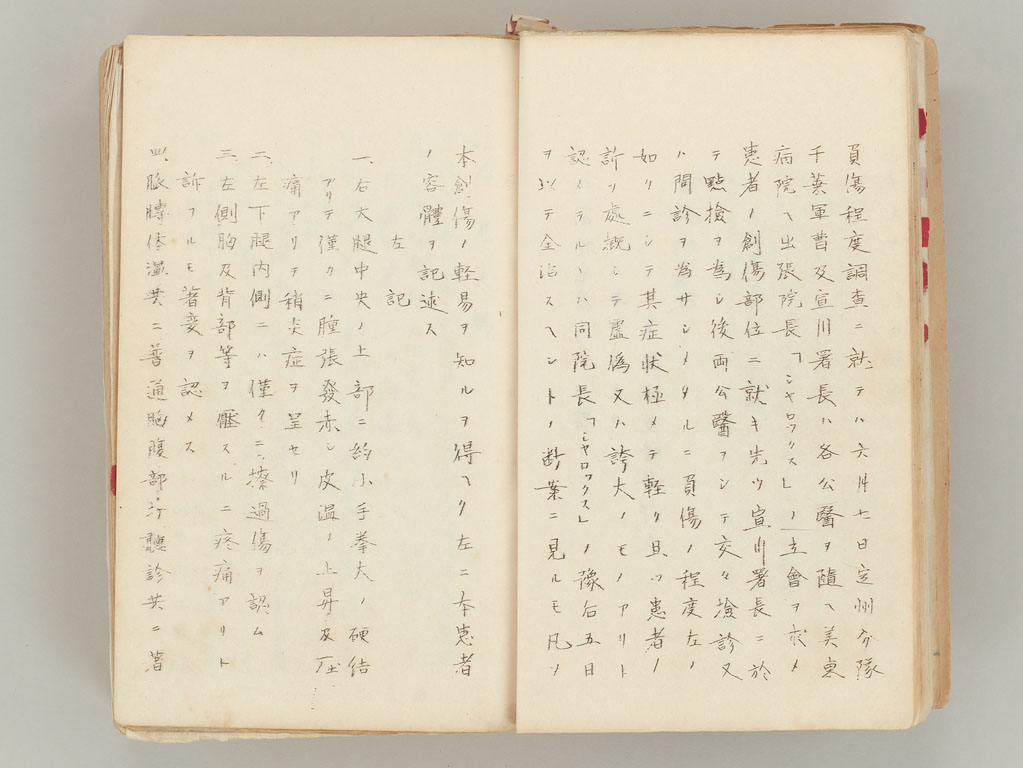 負傷程度調査ニ就テハ六月七日定州分隊
千葉軍曹及宣川署長ハ各公醫ヲ隨ヘ美東
病院ヘ出張院長「シャロックス」ノ立會ヲ求メ
患者ノ創傷部位ニ就キ先ツ宣川署長ニ於
テ點撿ヲ為シ後両公醫ヲシテ交々撿診又
ハ問診ヲ為サシメタルニ負傷ノ程度左ノ
如クニシテ其症状極メテ軽ク且ツ患者ノ
訴ツ處概シテ虚偽又ハ誇大ノモノアリト
認メラル、ハ同院長「シャロックス」ノ豫后五日
ヲ以テ全治スヘシトノ断案ニ見ルモ凡ソ
本創傷ノ軽易ヲ知ルヲ得ヘク左ニ本患者
ノ容體ヲ記述ス
左記
一、右大腿中央ノ上部ニ約小手拳大ノ硬結
アリテ僅クニ腫張發赤シ皮温ノ上昇及圧
痛アリテ稍炎症ヲ呈セリ
二、左下腿内側ニハ僅クニ擦過傷ヲ認ム
三、左側胸及背部等ヲ壓スルニ疼痛アリト
訴フルモ著変ヲ認メス
四、脈膊体温共ニ普通胸腹部ノ打聽診共ニ著